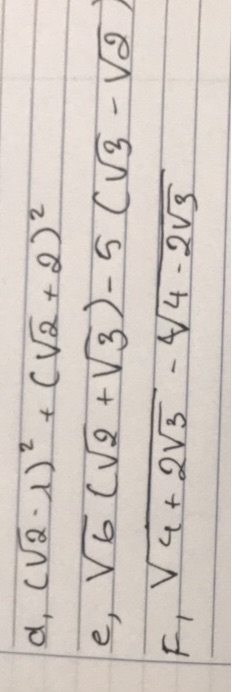 d, (√2 - 1)² + (√2 + 2)²
e, √6 (√2 + √3) - 5 (√3 - √2)
F, √(4 + 2√3) - √(4 - 2√3)